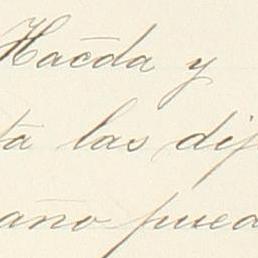 Hacđa y
ta las dif
año pued